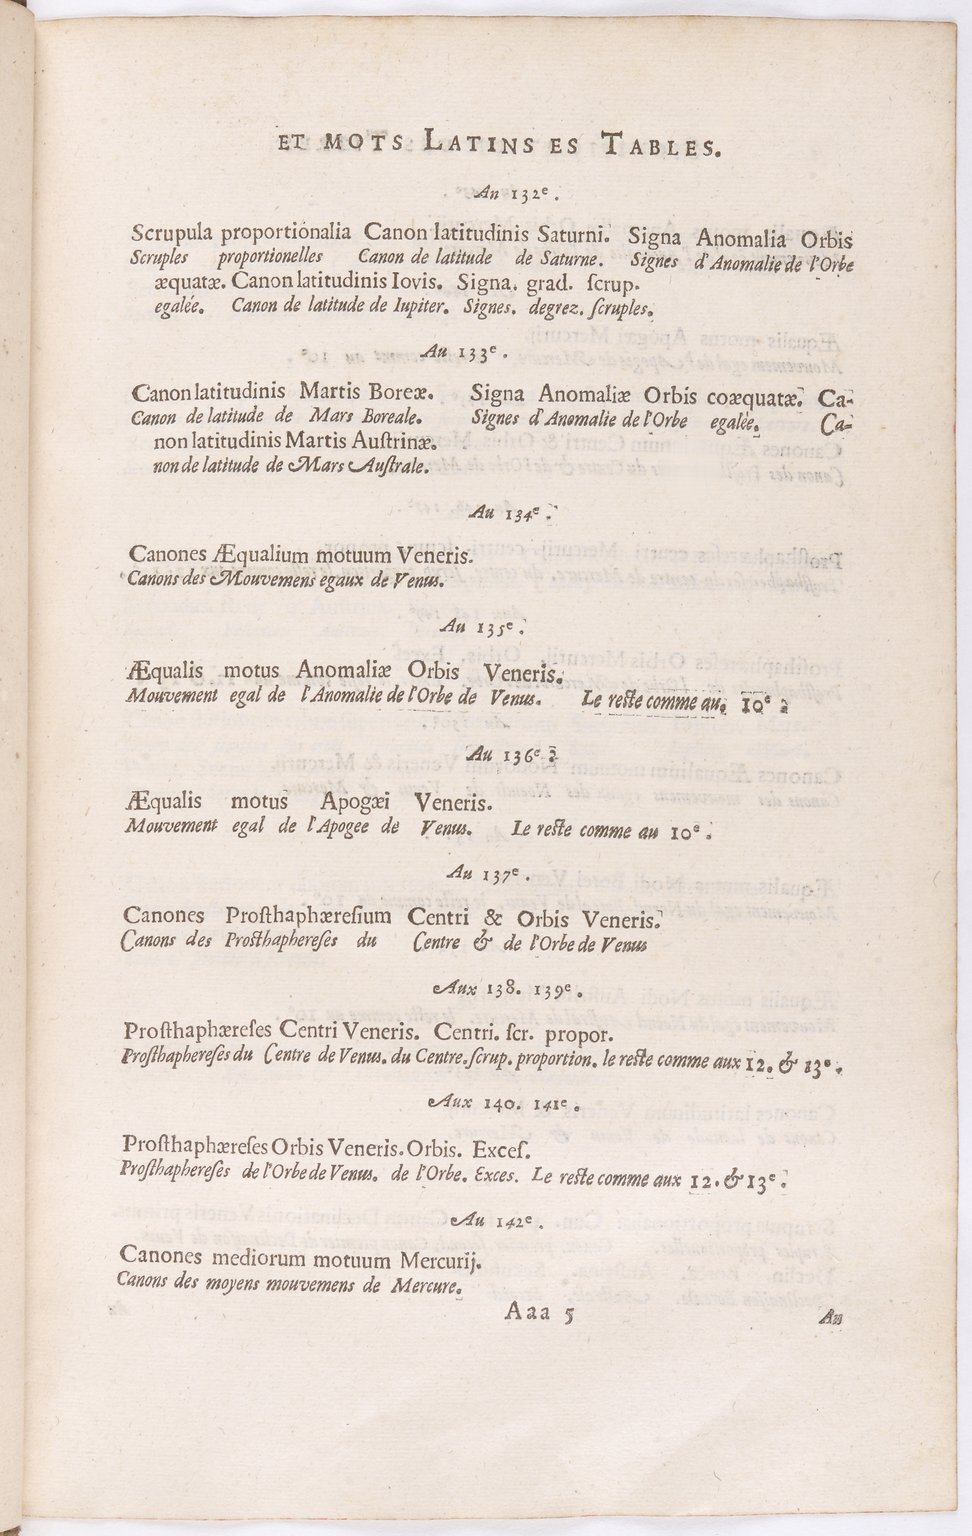 ET MOTS LATINS ES TABLES.
Au 132e.
Scrupula proportionalia Canon latitudinis Saturni. Signa Anomalia Orbis
Scruples proportionelles Canon de latitude de Saturne. Signes d'Anomalie de l'Orbe
æquatæ. Canon latitudinis Iovis. Signa. grad. ſcrup.
egalée. Canon de latitude de Iupiter. Signes. degrez. ſcruples.
Au 133e.
Canon latitudinis Martis Boreæ. Signa Anomaliæ Orbis coæquatæ. Ca-
Canon de latitude de Mars Boreale. Signes d'Anomalie de l'Orbe egalée. Ca-
non latitudinis Martis Auſtrinæ.
non de latitude de Mars Auſtrale.
Au 134e.
Canones Æqualium motuum Veneris.
Canons des Mouvemens egaux de Venus.
Au 135e.
Æqualis motus Anomaliæ Orbis Veneris.
Mouvement egal de l'Anomalie de l'Orbe de Venus. Le reſte comme au 10e.
Au 136e.
Æqualis motus Apogæi Veneris.
Mouvement egal de l'Apogee de Venus. Le reſte comme au 10e.
Au 137e.
Canones Proſthaphæreſium Centri & Orbis Veneris.
Canons des Proſthaphereſes du Centre & de l'Orbe de Venus
Aux 138. 139e.
Proſthaphæreſes Centri Veneris. Centri. ſcr. propor.
Proſthaphereſes du Centre de Venus. du Centre. ſcrup. proportion. le reſte comme aux 12. & 13e.
Aux 140. 141e.
Proſthaphæreſes Orbis Veneris. Orbis. Exceſ.
Proſthaphereſes de l'Orbe de Venus. de l'Orbe. Exces. Le reſte comme aux 12. & 13e.
Au 142e.
Canones mediorum motuum Mercurij.
Canons des moyens mouvemens de Mercure.
Aaa 5 Au